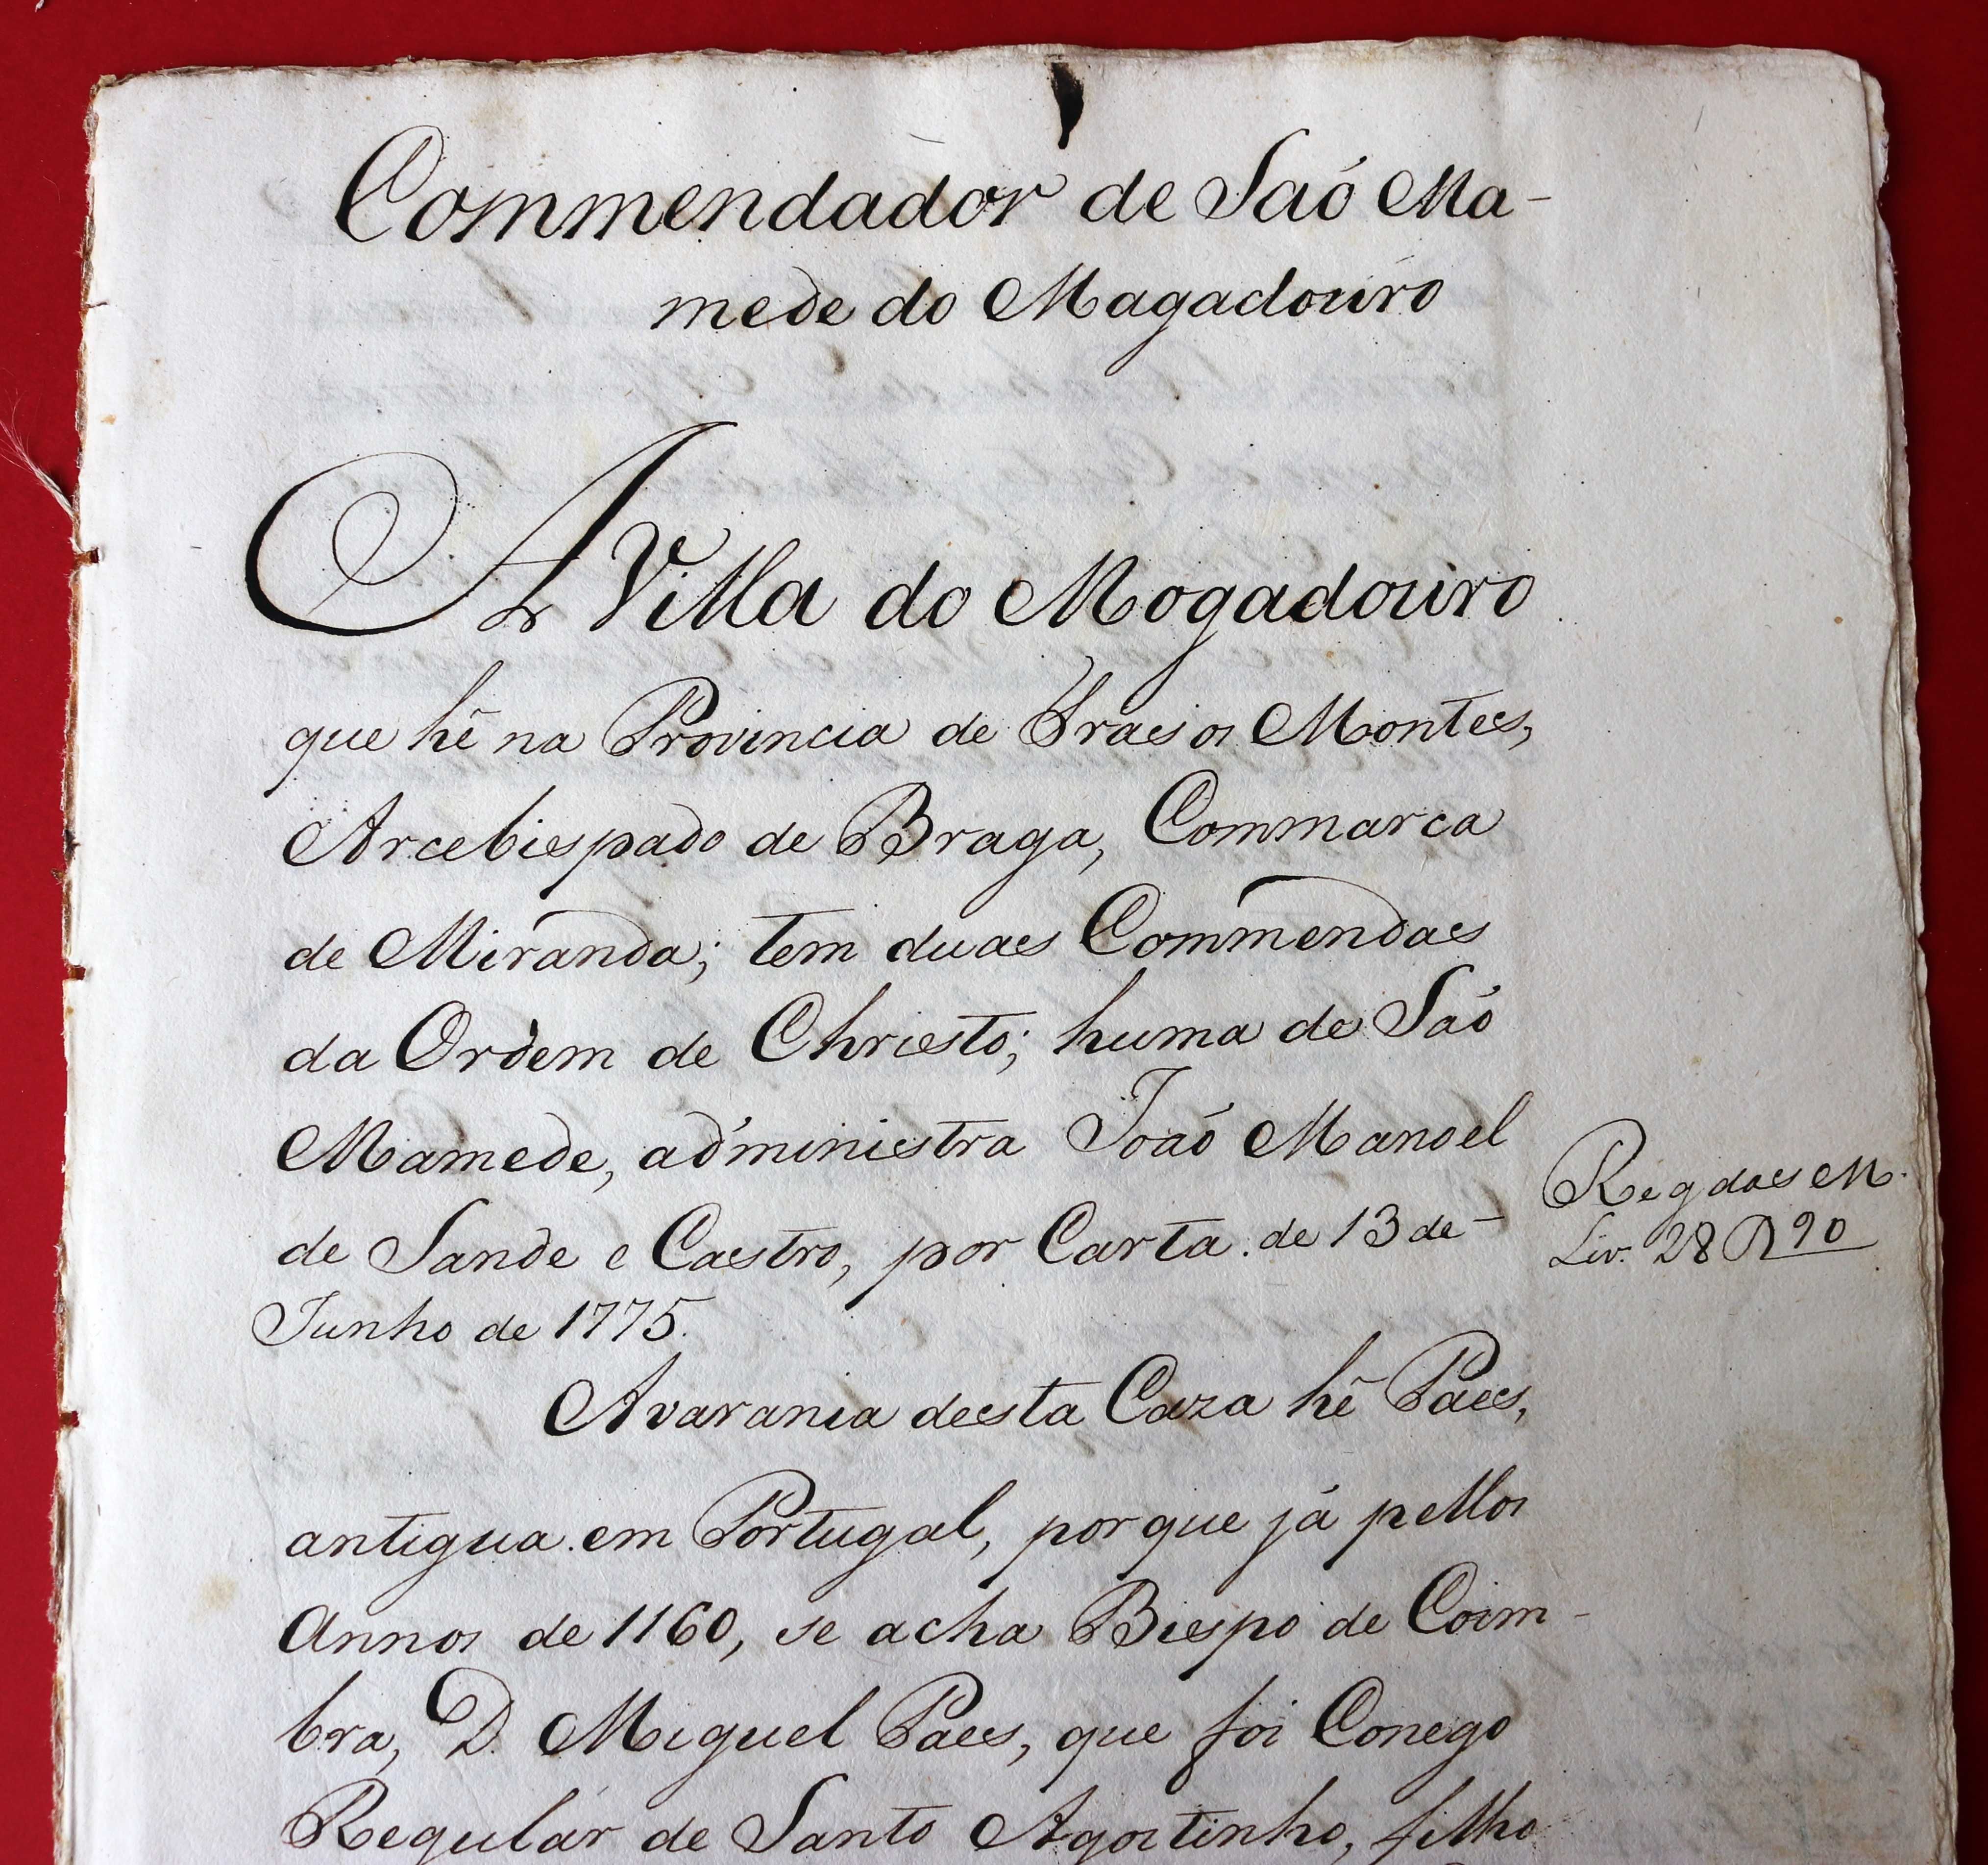 Commendador de Saó Ma-
mede do Magadouro
A Villa do Mogadouro
que hé na Provincia de Tras os Montes,
Arcebispado de Braga, Commarca
de Miranda; tem duas Commendas
da Ordem de Christo; huma de Saó
Mamede, administra Joaó Manoel
de Sande e Castro, por Carta de 13 de
Junho de 1775.
Reg das M.
Liv. 28 90
Avarania desta Caza hé Paes,
antigua em Portugal, porque já pellos
Annos de 1160, se acha Bispo de Coim-
bra, D. Miguel Paes, que foi Conego
Regulár de Santo Agostinho, filho